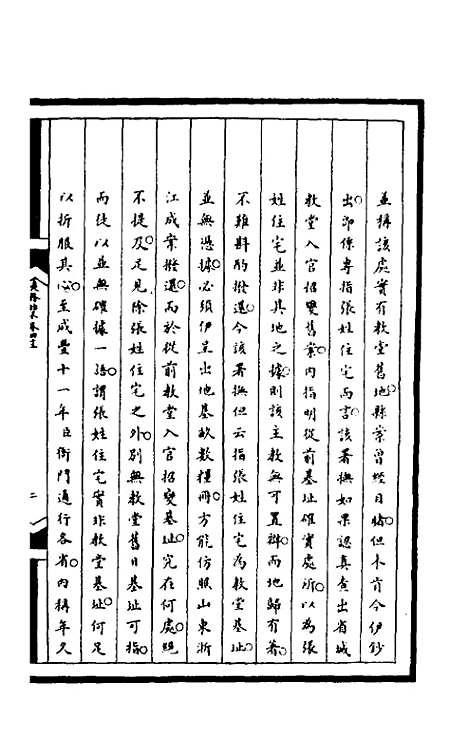 並稱該處實有教堂舊地縣案曾經目睹但未肯令伊鈔
出即係專指張姓住宅而言該署撫如果認真查出省城
教堂入官招變舊案內指明從前基址確實處所以為張
姓住宅並非其地之據則該主教無可置辯而地歸有著
不難斟酌撥還今該署撫但云指張姓住宅為教堂基址
並無憑據必須伊呈出地基畝數糧冊方能仿照山東浙
江成案撥還而於從前教堂入官招變基址究在何處絕
不提及足見除張姓住宅之外別無教堂舊日基址可指
而徒以並無確據一語謂張姓住宅實非教堂基址何足
以折服其心至咸豐十一年臣衙門通行各省內稱年久
二